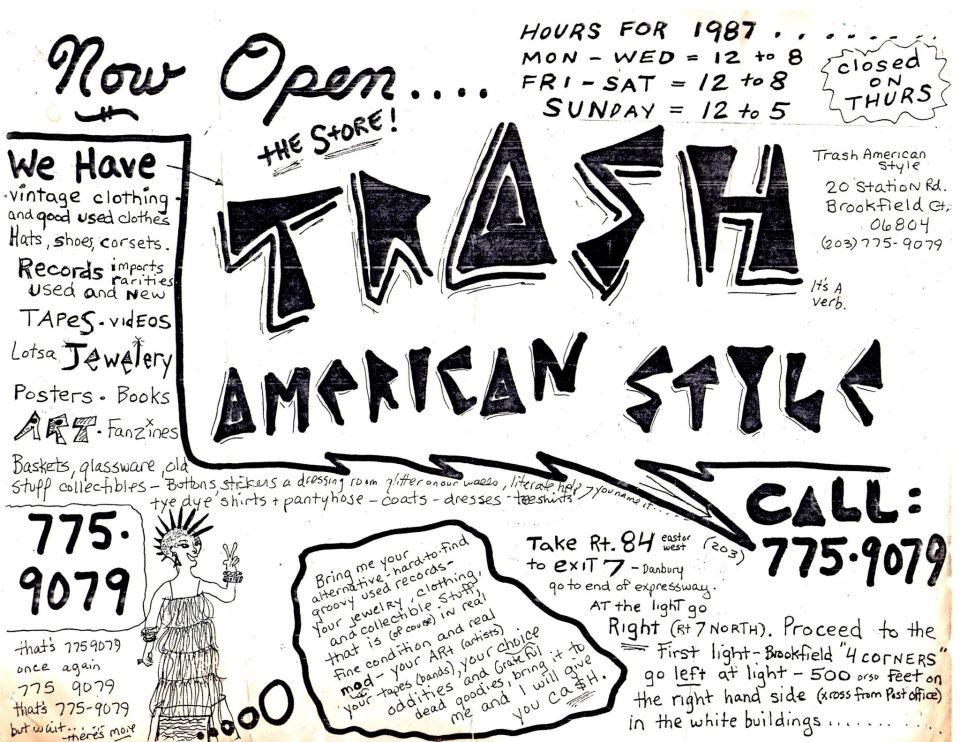 Now Open....
THE STORE!
HOURS FOR 1987 . . . . . . . .
MON - WED = 12 to 8
FRI - SAT = 12 to 8
SUNDAY = 12 to 5
closed
ON
THURS
We Have
vintage clothing
and good used clothes
Hats, shoes, corsets.
Records imports
rarities
used and new
TAPES. videos
Lotsa Jewelery
Posters. Books
ART. Fanzines
Baskets, glassware, old
stuff collectibles - Buttons stickers a dressing room glitter on our walls, literate help, you name it....
tye dye shirts + pantyhose - coats - dresses - teeshirts
TRASH
AMERICAN STYLE
It's A
verb.
Trash American
Style
20 Station Rd.
Brookfield Ct,
06804
(203) 775-9079
CALL:
(203) 775.9079
775.
9079
that's 7759079
once again
775 9079
that's 775-9079
but wait...
there's more
Bring me your
alternative - hard-to-find
groovy used records -
your jewelry, clothing,
and collectible stuff,
that is (of course) in real
fine condition and real
mod - your ART (artists)
your tapes (bands), your choice
oddities and Grateful
dead goodies, bring it to
me and I will give
you Ca$H.
Take Rt. 84 east or west
to exit 7 - Danbury
go to end of expressway.
AT the light go
Right (RT 7 NORTH). Proceed to the
First light - Brookfield "4 CORNERS"
go left at light - 500 or so feet on
the right hand side (xross from Post office)
in the white buildings . . . . . . . .